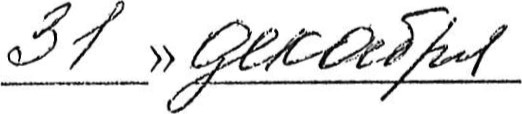 31 » декабря